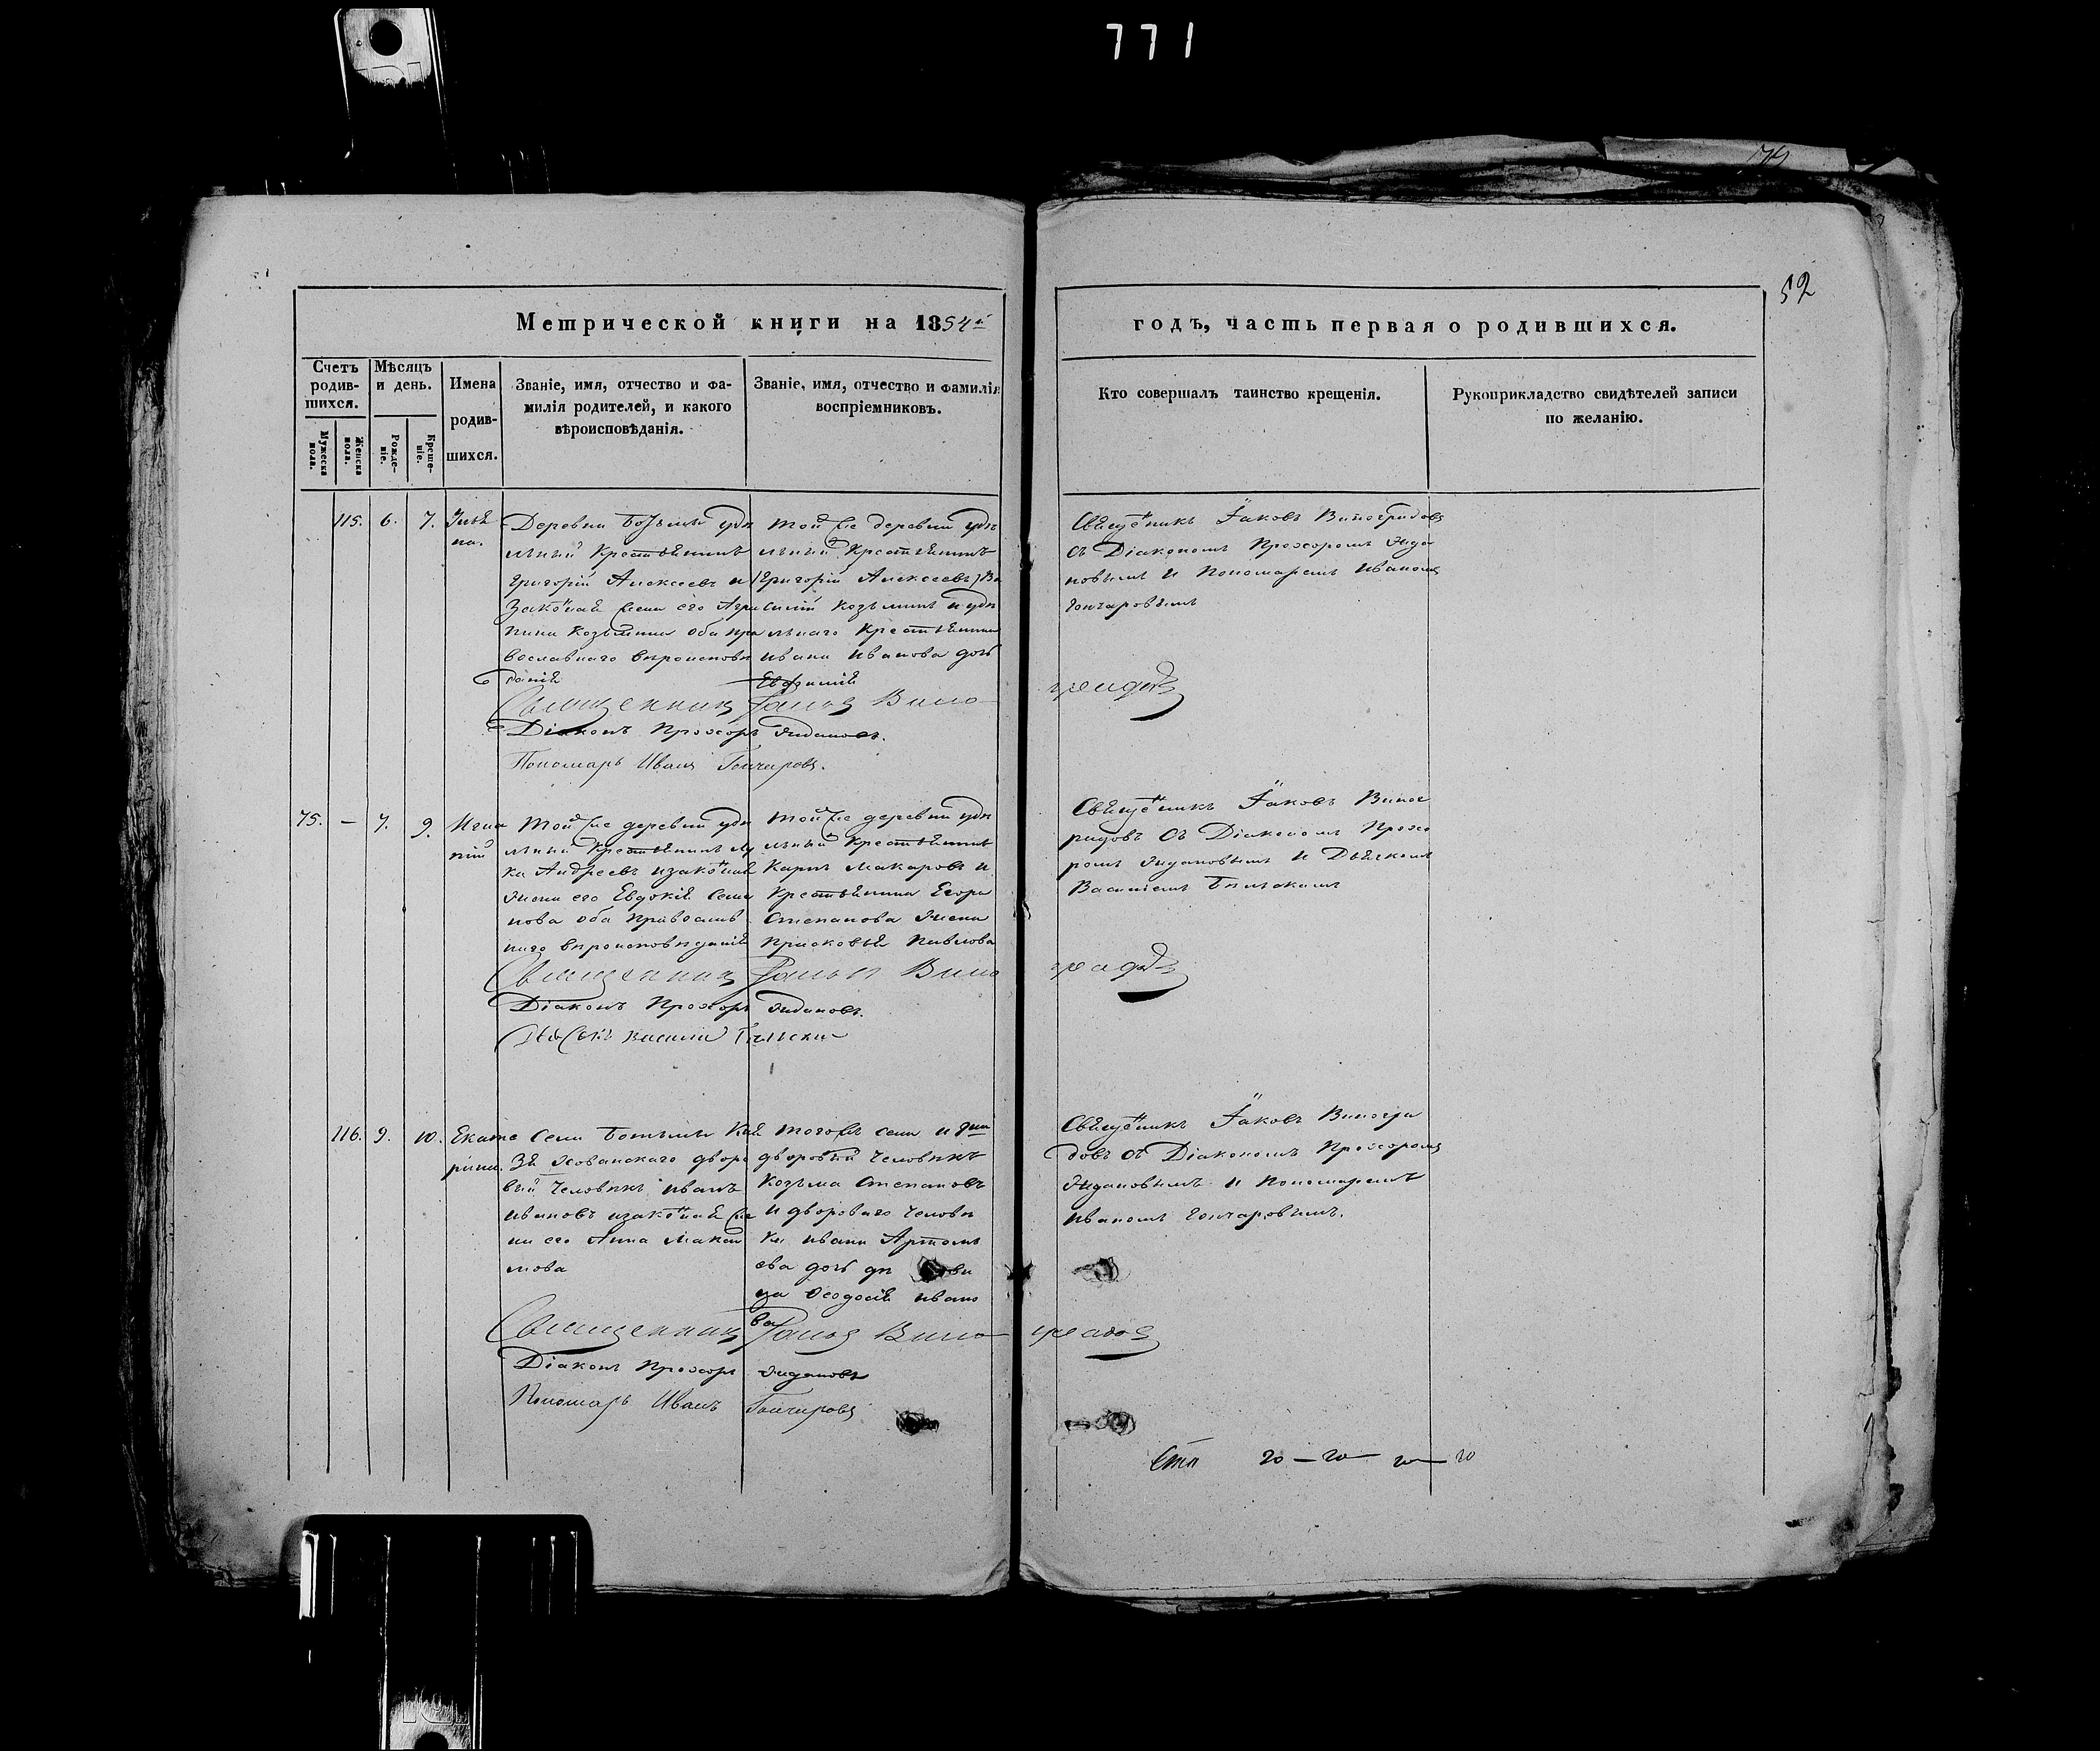 771
79
52
Метрической книги на 1854й
годъ, часть первая о родившихся.
Счетъ родившихся.
Мужеска пола.
Женска пола.
Мѣсяцъ и день.
Рожденіе.
Крещеніе.
Имена родившихся.
Званіе, имя, отчество и фамилія родителей, и какого вѣроисповѣданія.
Званіе, имя, отчество и фамилія воспріемниковъ.
Кто совершалъ таинство крещенія.
Рукоприкладство свидѣтелей записи по желанію.
115. 6. 7.
Деревни удѣ
льный Крестьянинъ
Григорій Алексеевъ и
Законная жена его Агри
пина Козьмина оба пра
вославнаго вѣроисповѣ
данія
Той же деревни удѣ
льный Крестьянинъ
Григорій Алексеевъ) Ва
силій Козьминъ и удѣ
льнаго Крестьянина
Ивана Иванова дочь
Евфимія
Священникъ Іаковъ Виноградовъ
съ Діакономъ Прохоромъ Жида
новымъ и Пономаремъ Иваномъ
Гончаровымъ
Священникъ Іаковъ Вино
градовъ
Діаконъ Прохоръ Жидановъ.
Пономарь Иванъ Гончаровъ.
75. — 7. 9.
Той же деревни удѣ
льный Крестьянинъ Лу
ка Андреевъ и законная
жена его Евдокія Семе
нова оба Православ
наго вѣроисповѣданія
Той же деревни удѣ
льный Крестьянинъ
Карпъ Макаровъ и
Крестьянина Егора
Степанова жена
Прасковья Павлова
Священникъ Іаковъ Виног
радовъ съ Діакономъ Прохо
ромъ Жидановымъ и Дьячкомъ
Василіемъ
Священникъ Іаковъ Вино
градовъ
Діаконъ Прохоръ Жидановъ.
116. 9. 10. Екате
рина.
Села Кня
зя Хованскаго дворо
вый Человѣкъ Иванъ
Ивановъ и законная же
на его Анна Макси
мова
Того же села и
дворовый Человѣкъ
Козьма Степановъ
и двороваго Человѣ
ка Ивана Артемь
ева дочь
ца Ѳеодосія Ивано
ва
Священникъ Іаковъ Виногра
довъ съ Діакономъ Прохоромъ
Жидановымъ и Пономаремъ
Иваномъ Гончаровымъ.
Священникъ Іаковъ Вино
градовъ
Діаконъ Прохоръ Жидановъ
Пономарь Иванъ Гончаровъ